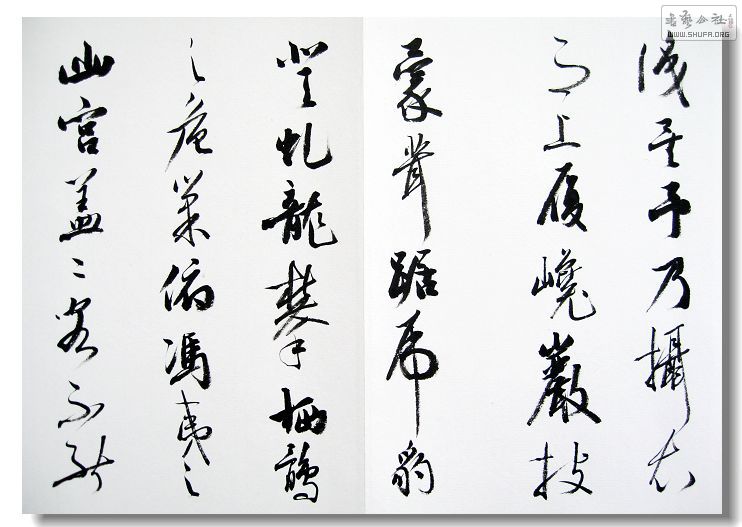 識矣予乃攝衣
而上履巉巖披
蒙茸踞虎豹
登虬龍攀栖鶻
之危巢俯馮夷之
幽宮蓋二客不能
書藝公社
WWW.SHUFA.ORG